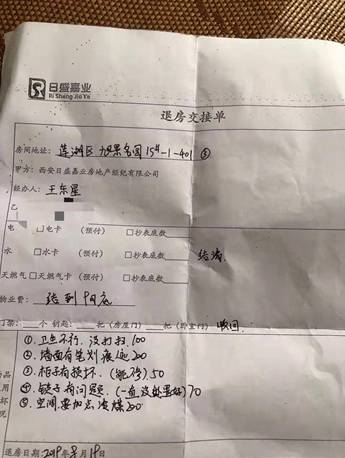 日盛嘉业
Ri Sheng Jia Ye
退房交接单
房间地址: 莲湖区 旭景名园15#-1-401 ⑤
甲方: 西安日盛嘉业房地产经纪有限公司
经办人: 王东星
乙
电 □电卡 (预付) □抄表底数
水 □水卡 (预付) □抄表底数 结清
天燃气 □天燃气卡 (预付) □抄表底数
物业费: 结到9月底
门禁: 个 钥匙: 把 (房屋门) 把 (卧室门) 收回
①. 卫生不行. 没打扫. 100
②. 墙面有笔划 200
③. 柜子有损坏. 50
④. 镜子有问题. (一直没处理好) 70
⑤. 空调要加点冷媒 200
品
用
坏
况
退房日期: 2019年8月19日